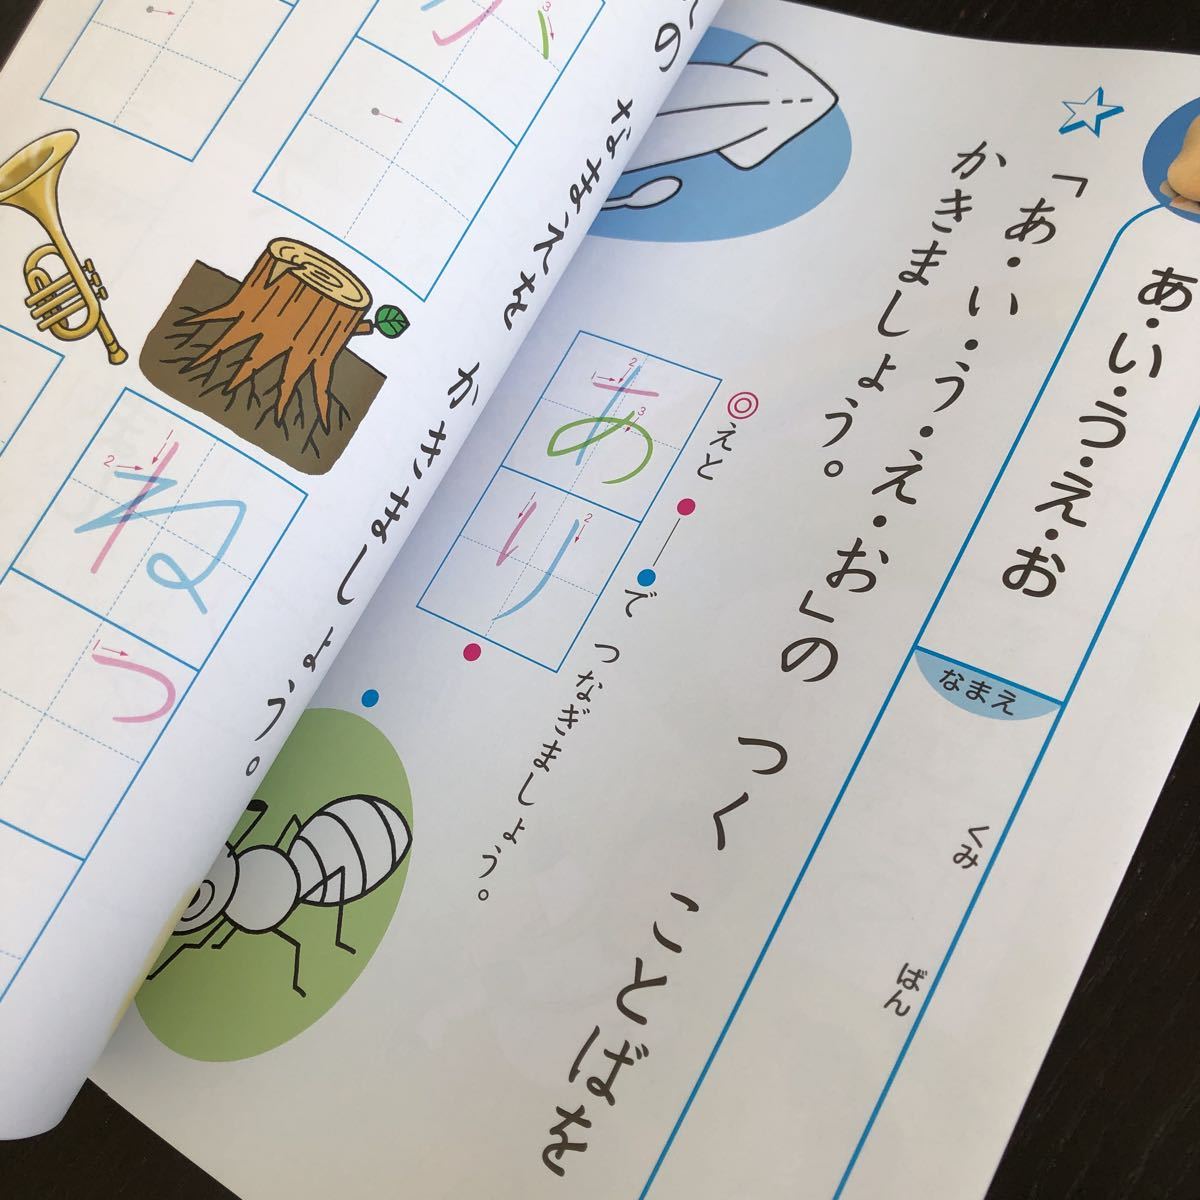 あ・い・う・え・お
なまえ
くみ
ばん
☆「あ・い・う・え・お」の つく ことばを
かきましょう。
◎えと ●―●で つなぎましょう。
あり
の なまえを かきましょう。
ね
つ